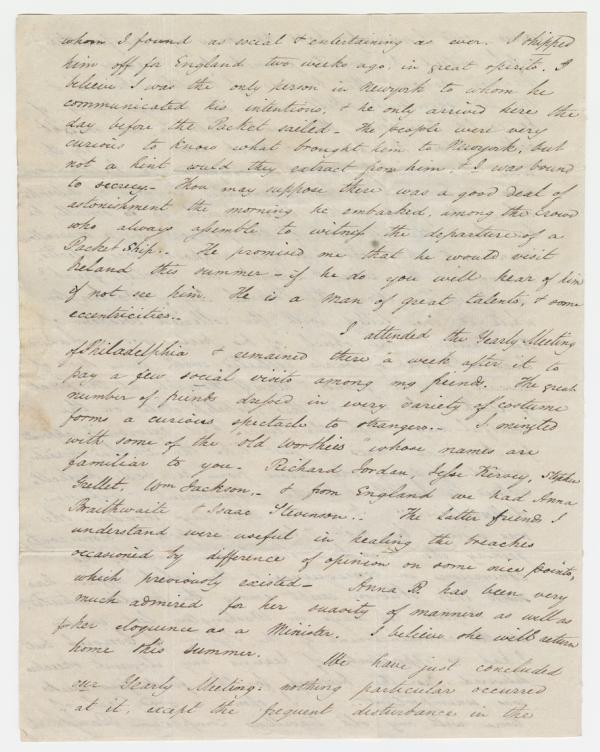 whom I found as social & entertaining as ever. I shipped
him off for England two weeks ago, in great spirits. I
believe I was the only person in Newyork to whom he
communicated his intentions, & he only arrived here the
day before the Packet sailed - The people were very
curious to know what brought him to Newyork, but
not a hint could they extract from him, & I was bound
to secrecy - Thou may suppose there was a good deal of
astonishment the morning he embarked, among the crowd
who always assemble to witness the departure of a
Packet Ship.. He promised me that he would visit
Ireland this summer - if he do you will hear of him
if not see him. He is a man of great talents, & some
eccentricities..
I attended the Yearly Meeting
of Philadelphia & remained there a week after it to
pay a few social visits among my friends. The great
number of friends dressed in every variety of costume
forms a curious spectacle to strangers.- I mingled
with some of the "old Worthies" whose names are
familiar to you - Richard Jordan, Jesse Kersey, Stephen
Grellet, Wm Jackson.. & from England we had Anna
Braithwaite & Isaac Stevenson.. The latter friends I
understand were useful in healing the breaches
occasioned by difference of opinion on some nice points,
which previously existed - Anna B. has been very
much admired for her suavity of manners as well as
for her eloquence as a Minister. I believe she will return
home this summer. We have just concluded
our Yearly Meeting: nothing particular occurred
at it, except the frequent disturbance in the